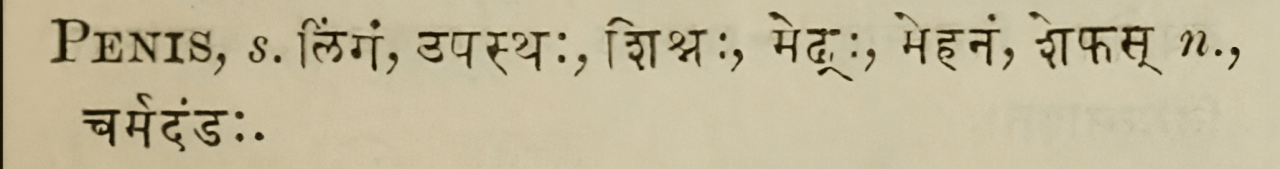 PENIS, s. लिंगं, उपस्थः, शिश्नः, मेढ्रः, मेहनं, शेफस् n.,
चर्मदंडः.